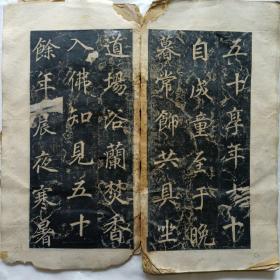 五十學年七十
自成童至于晚
暮常飾共具坐
道場浴蘭焚香
入佛知見五十
餘年晨夜寒暑